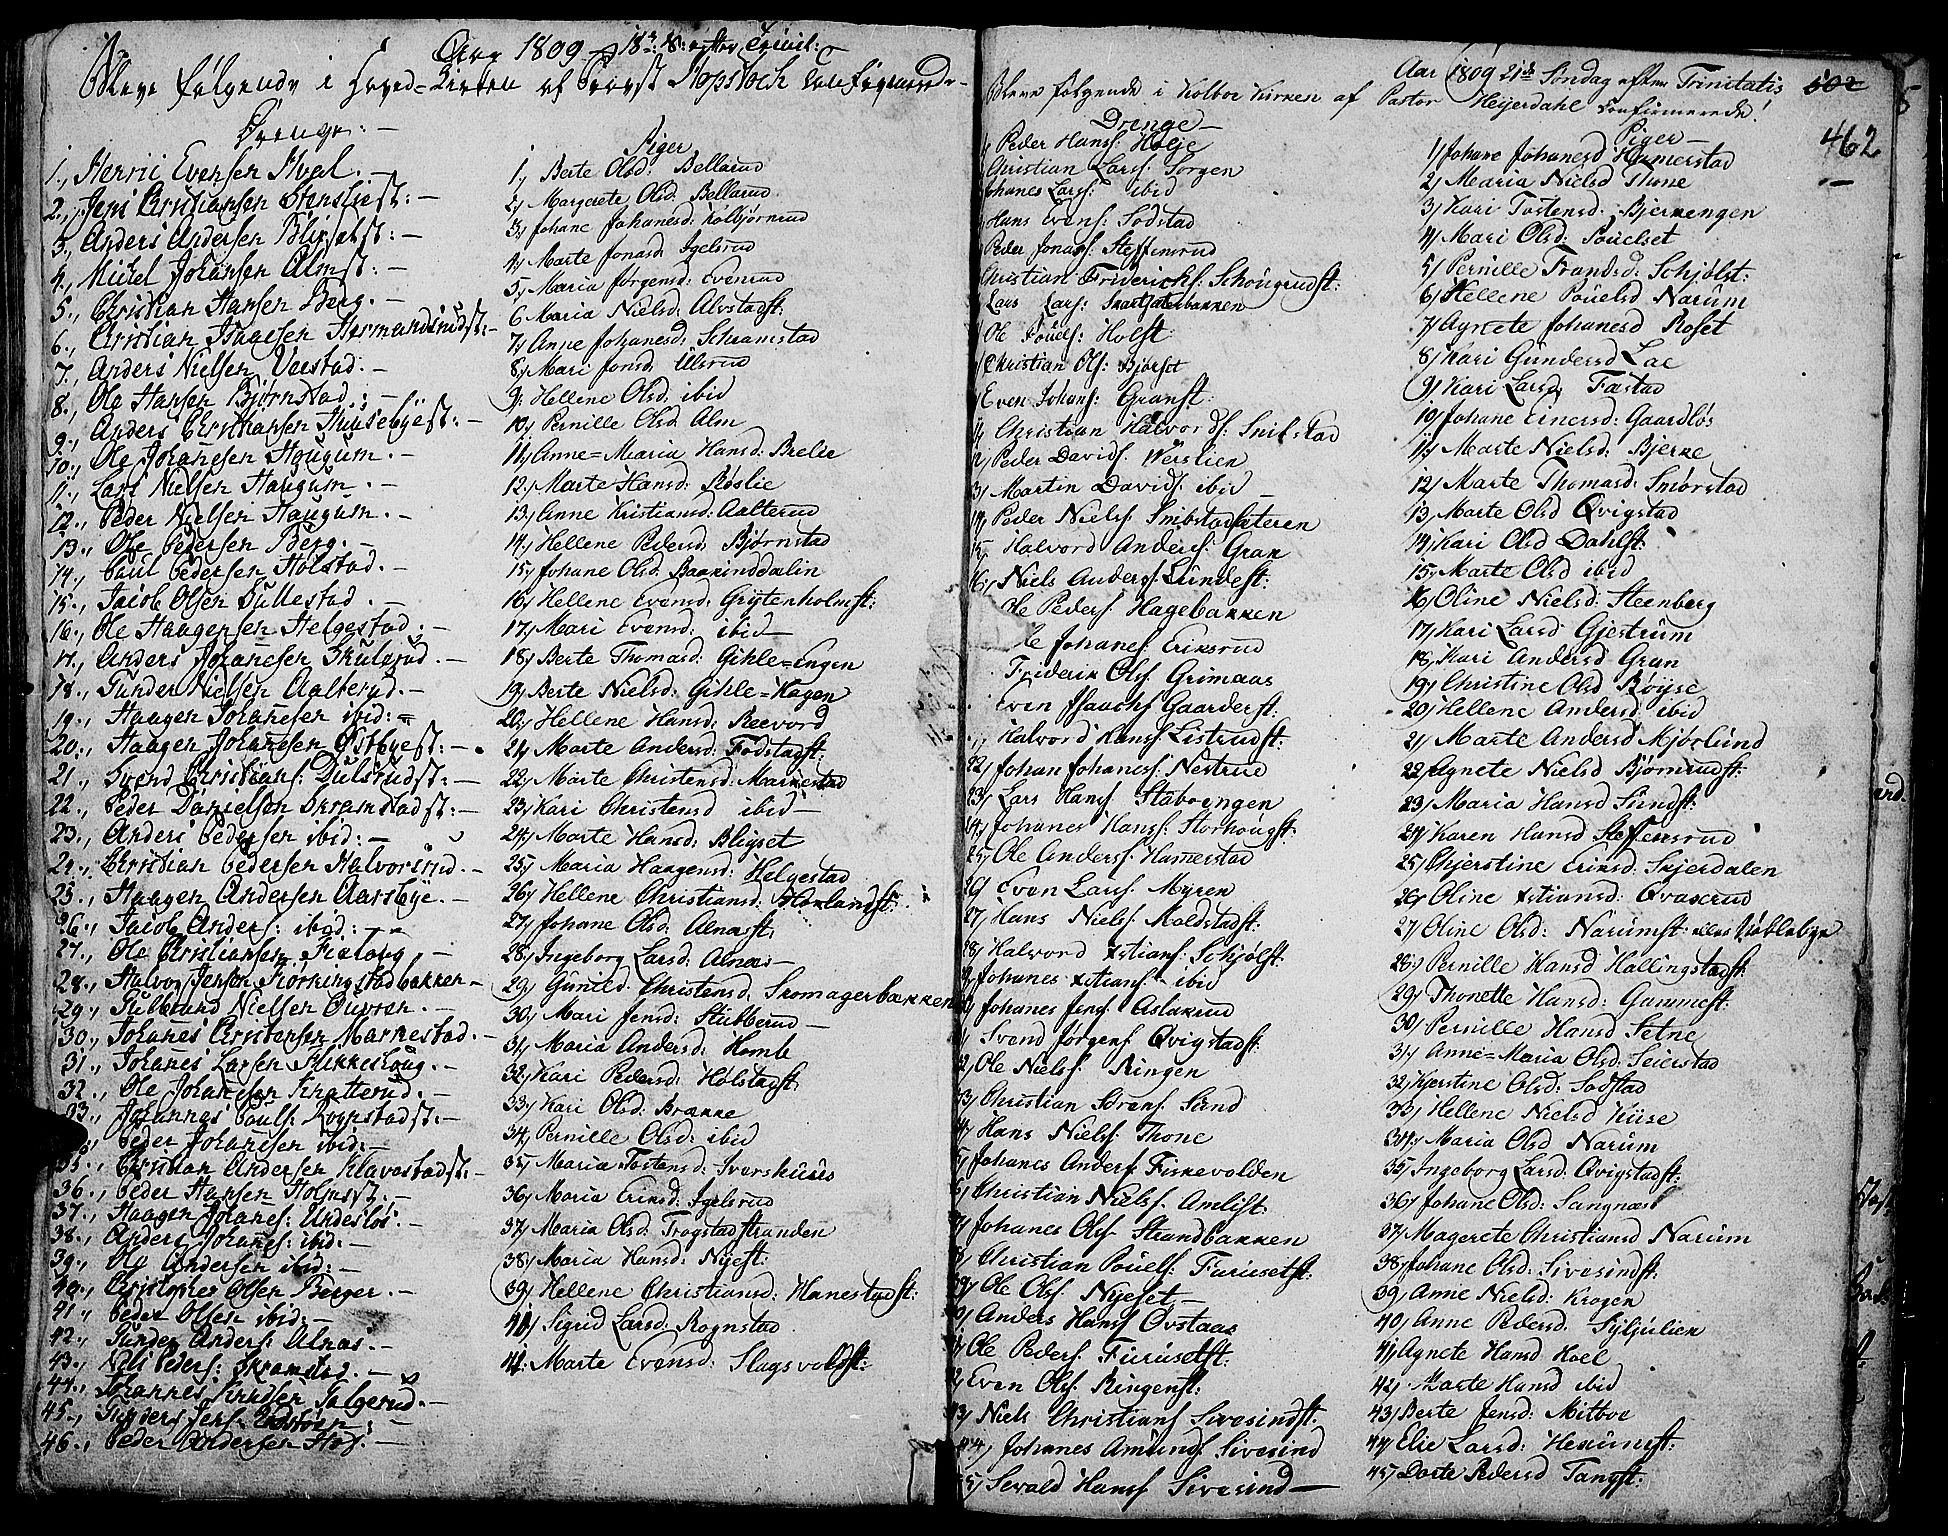 Aar 1809 d. 18de S: efter Trinit:
Bleve følgende i Hoved-Kirken af Provst Kopstock Confirmerede
Drenge. —
1., Henric Evensen Hval. —
2., Jens Christiansen Stensliest: —
3., Anders Andersen Blixetst: —
4., Michel Johansen Almst: —
5., Christian Hansen Berg. —
6., Christian Haagensen Hermandsrudst: —
7., Anders Nielsen Vaestad: —
8., Ole Hansen Bjørnstad: —
9., Anders Christiansen Huusebyest: —
10., Ole Johannesen Haugum. —
11., Lars Nielsen Haugum. —
12., Peder Nielsen Haugum. —
13., Ole Pedersen Berg. —
14., Paul Pedersen Holstad. —
15., Jacob Olsen Dullestad. —
16., Ole Haagensen Helgestad. —
17., Anders Johannesen Skulerud. —
18., Gunder Nielsen Aalterud. —
19., Haagen Johannesen ibid: =
20., Haagen Johannesen Østbyest: —
21., Svend Christians: Dulsrudst: —
22., Peder Danielsen Skramstadst: —
23., Anders Pedersen ibid: —
24., Christian Pedersen Halvorsrud. —
25., Haagen Andersen Aarsbye. —
26., Jacob Anders: ibid: —
27., Ole Christiansen —
28., Halvor Jensen Kiørkingstadbakken —
29., Gulbrand Nielsen —
30., Johannes Christensen Markestad. —
31., Johannes Larsen Stikkehoug. —
32., Ole Johannesen Knatterud. —
33., Johannes Pauls: Rognstadst: —
Peder Johannesen ibid: —
35., Christian Andersen Klavestadst: —
36., Peder Hansen Holmst. —
37., Haagen Johanes: Undesløs. —
38., Anders Johanes: ibid. —
39., Ole Andersen ibid: —
40., Christopher Olsen Berger. —
41., Peder Olsen ibid: —
42., Gunder Anders: Alnæs. —
43., Nils Peders: Skramstad. —
44., Johannes Knudsen Salgerud. —
45., Gunder Jens:
46., Peder Andersen Hof. —
Piger
1, Berte Olsd: Bellerud
2, Margrete Olsd: Bellerud
3, Johane Johanesd: Kolbjørnrud
4, Marte Jonasd: Igelsrud
5, Maria Jørgensd: Evenrud
6 Maria Nielsd: Alvstadst:
7, Anne Johanesd: Schramstad
8, Mari Jonsd: Ulsrud
9, Hellene Olsd: ibid
10, Pernille Olsd: Alm
11, Anne=Maria Hansd: Brelie
12, Marte Hansd: Røslie
13, Anne Kristiansd: Aalterud
14, Hellene Pedersd: Bjørnstad
15, Johane Olsd: Bakkinddælin
16, Hellene Evensd: Grytenholmst:
17, Mari Evensd: ibid —
18, Berte Thomasd: Gihle=Engen
19, Berte Nielsd: Gihle=Hagen
20, Hellene Hansd: Reevord
21, Marte Andersd: Fodstadst:
22, Marte Christensd: Markestad
23, Kari Christensd ibid —
24, Marte Hansd: Bligset
25, Maria Haagensd: Helgestad
26, Hellene Christiansd: Hovlandst:
27, Johane Olsd: Alnæsst:
28, Ingeborg Larsd: Alnæs —
29, Gunild Christensd: Skomagerbakken
30, Mari Jensd: Stubberud —
31, Maria Andersd: Homb
32, Kari Pedersd: Holstadst:
33, Kari Olsd: Brække
34, Pernille Olsd: ibid
35, Maria Tostensd: Ivershuus
36, Maria Eriksd: Igelsrud
37, Maria Olsd: Trogstadstranden
38, Maria Hansd: Nyest:
39, Hellene Christiansd: Hanestadst:
40, Sigrid Larsd: Rognstad
41: Marte Evensd: Slagsvoldst:
Aar 1809 21de Søndag efter Trinitatis
Bleve følgende i Kolboe Kirken af Pastor Heijerdahl Confirmerede!
502
462
Drenge —
Peder Hans: Hoeje
Christian Lars: Sorgen
Johanes Lars: ibid
Hans Evens: Sodstad
Peder Jonas: Steffensrud
Christian Friderichs: Schougrudst:
Lars Lars: Skartsæterbakken
Ole Pouels: Holst
Christian Ols: Bjørset
Even Johans: Granst:
11, Christian Halvords: Snibstad
12, Peder Davids: Werslien
13, Martin Davids: ibid —
14, Peder Niels: Snibstadsæteren
15, Halvord Anders: Gran
16, Niels Anders: Lundest:
Ole Peders: Hagebakken
Ole Johanes: Eriksrud
Friderik Ols: Grimaas
Even Isaachs: Gaarderst:
Halvord Hans: Listrudst:
22, Johan Johanes: Nestrud
23, Lars Hans: Staboengen
24, Johanes Hans: Storhougst:
25, Ole Anders: Hamerstad
26 Even Lars: Myren
27, Hans Niels: Maldstadst:
28, Halvord Xstians: Schjølst:
29, Johanes Xstians: ibid
30, Johanes Jens: Aslakrud
Svend Jørgens: Qvigstadst:
32, Ole Niels: Ringen
33, Christian Sørens: Sund
Hans Niels: Thone
Johanes Anders: Fiskevolden
Christian Niels: Amlist:
Johanes Ols: Strandbakken
Christian Pouels: Furusetst:
39, Ole Ols: Nyeset —
40, Anders Hans: Ovstaas
Ole Peders: Furusetst:
Even Ols: Ringenst:
43, Niels Christians: Sivesindst:
44, Johanes Amunds: Sivesind
45, Sevald Hans: Sivesind —
Piger —
1, Johane Johanesd Hamerstad
2, Maria Nielsd Thune
3, Kari Tostensd: Bjerkengen
4, Mari Olsd: Pouelset
5, Pernille Frandsd: Schjølst:
6, Hellene Pouelsd Narum
7, Agnete Johanesd Roset
8, Kari Gundersd Lae
9, Kari Larsd: Fæstad
10, Johane Einersd: Gaardløs
11, Marte Nielsd: Bjerke
12, Marte Thomasd: Smørstad
13, Marte Olsd Qvigstad
14, Kari Olsd Dahlst:
15, Marte Olsd ibid
16, Oline Nielsd: Steenberg
17, Kari Larsd: Gjestrum
18, Kari Andersd Gran
19, Christine Olsd Røyse
20, Hellene Andersd ibid
21, Marte Andersd Mjørlund
22, Agnete Nielsd Bjørnrudst:
23, Maria Hansd Sundst:
24, Karen Hansd Steffensrud
25, Chjerstine Eriksd: Skjerdalen
26, Oline Xstiansd: Qvækrud
27, Oline Olsd: Narumst:
28, Pernille Hansd Hallingstadst:
29, Thonette Hansd: Gammest:
30, Pernille Hansd Setne
31, Anne=Maria Olsd: Seierstad
32, Kjerstine Olsd: Sodstad
33, Hellene Nielsd Kiise
34, Maria Olsd Narum
35, Ingeborg Larsd: Qvigstadst:
36, Johane Olsd: Sangnæst
37, Magerete Christiansd Narum
38, Johane Olsd: Sivesindst:
39, Anne Nielsd: Krogen
40, Anne Pedersd: Syljulien
41, Agnete Hansd Hoel
42, Marte Hansd ibid
43, Berte Jensd: Mitboe
44, Elie Larsd: Hexumst:
45, Dorte Pedersd Tangst: